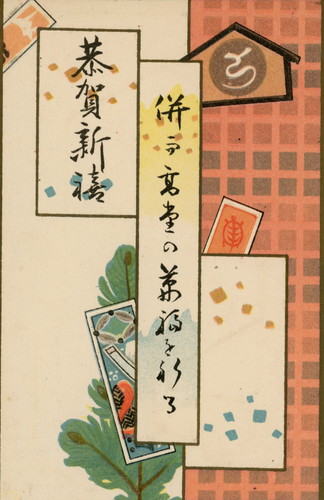 恭賀新禧
併而高堂の萬福を祈る